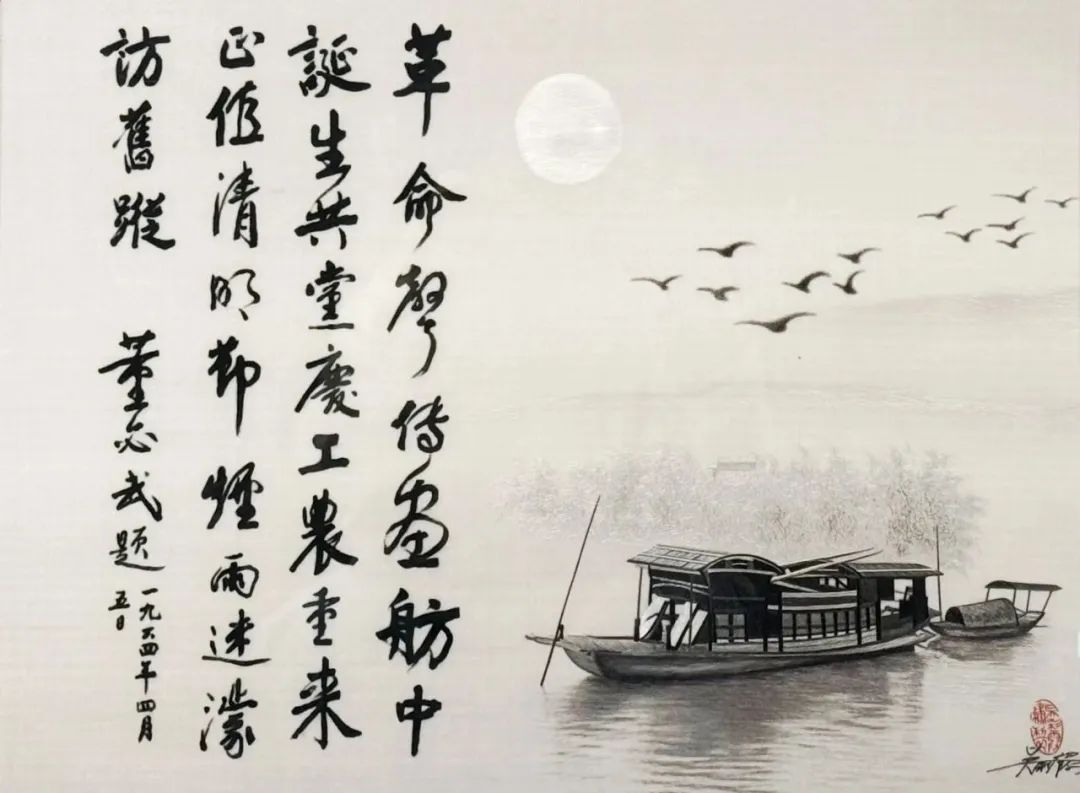 革命聲傳画舫中
誕生共黨慶工農重来
正值清明節煙雨迷濛
訪舊蹤
董必武題
一九六四年四月
五日